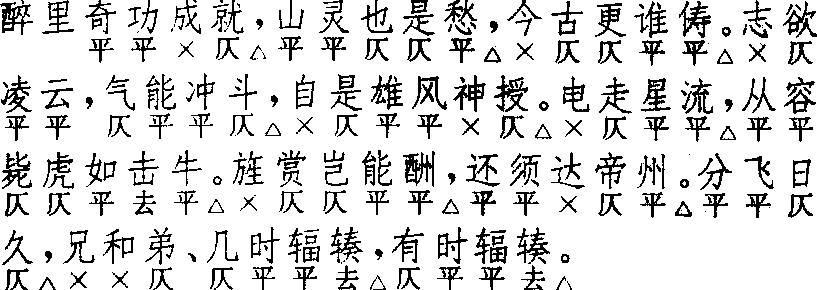 醉里奇功成就，山灵也是愁，今古更谁俦。志欲
平平×仄△平平仄仄平△×仄仄平平△×仄
凌云，气能冲斗，自是雄风神授。电走星流，从容
平平仄平平仄△×仄平平×仄△×仄平平△平平
毙虎如击牛。旌赏岂能酬，还须达帝州。分飞日
仄仄平去平△×仄仄平平△平平×仄平△平平仄
久，兄和弟、几时辐辏，有时辐辏。
仄△××仄仄平平去△仄平平去△